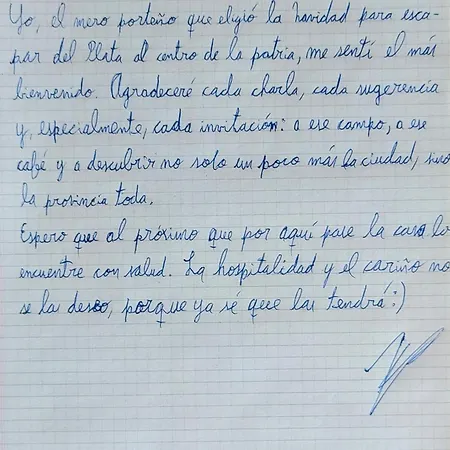 Yo, el mero porteño que eligió la navidad para esca-
par del Plata al centro de la patria, me sentí el más
bienvenido. Agradeceré cada charla, cada sugerencia
y, especialmente, cada invitación: a ese campo, a ese
café y a descubrir no solo un poco más la ciudad, sino
la provincia toda.
Espero que al próximo que por aquí pase la casa lo
encuentre con salud. La hospitalidad y el cariño no
se las deseo, porque ya sé que las tendrá :)